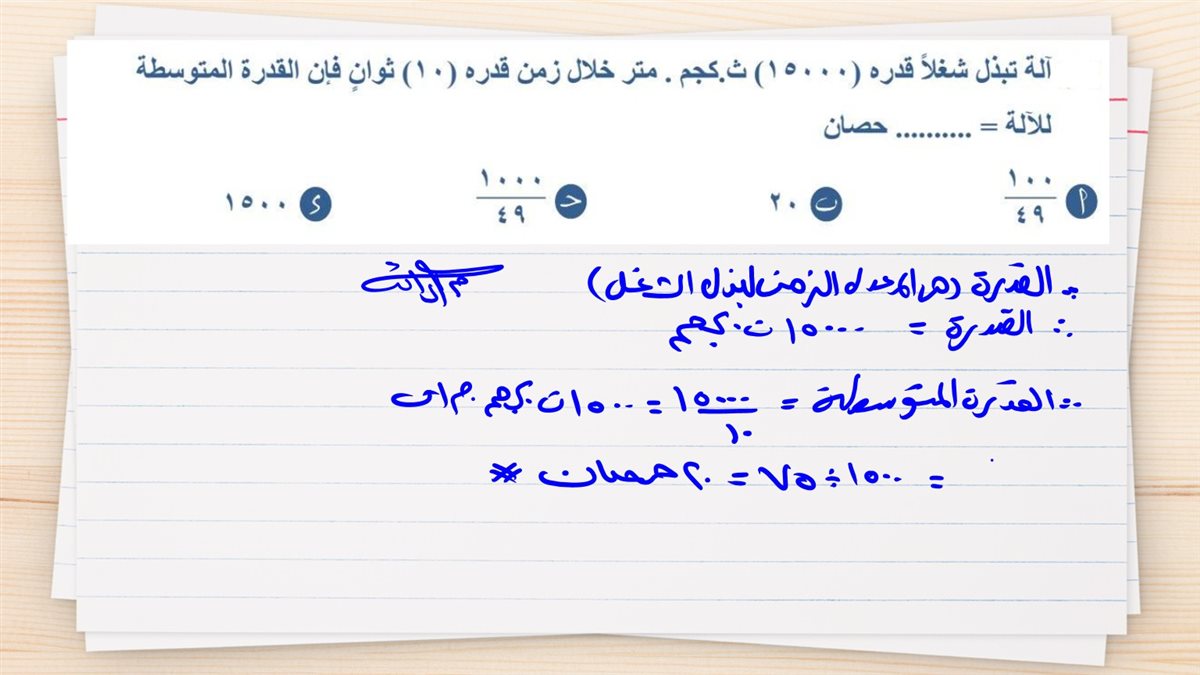 آلة تبذل شغلاً قدره (١٥٠٠٠) ث.كجم . متر خلال زمن قدره (١٠) ثوانٍ فإن القدرة المتوسطة
للآلة = .......... حصان
أ ١٠٠/٤٩ ب ٢٠ حـ ١٠٠٠/٤٩ د ١٥٠٠
∵ القدرة (هى المعدل الزمنى لبذل الشغل)
∴ القدرة = ١٥٠٠٠ ث.كجم
∴ القدرة المتوسطة = ١٥٠٠٠/١٠ = ١٥٠٠ ث.كجم.م/ث
= ١٥٠٠ ÷ ٧٥ = ٢٠ حصان *